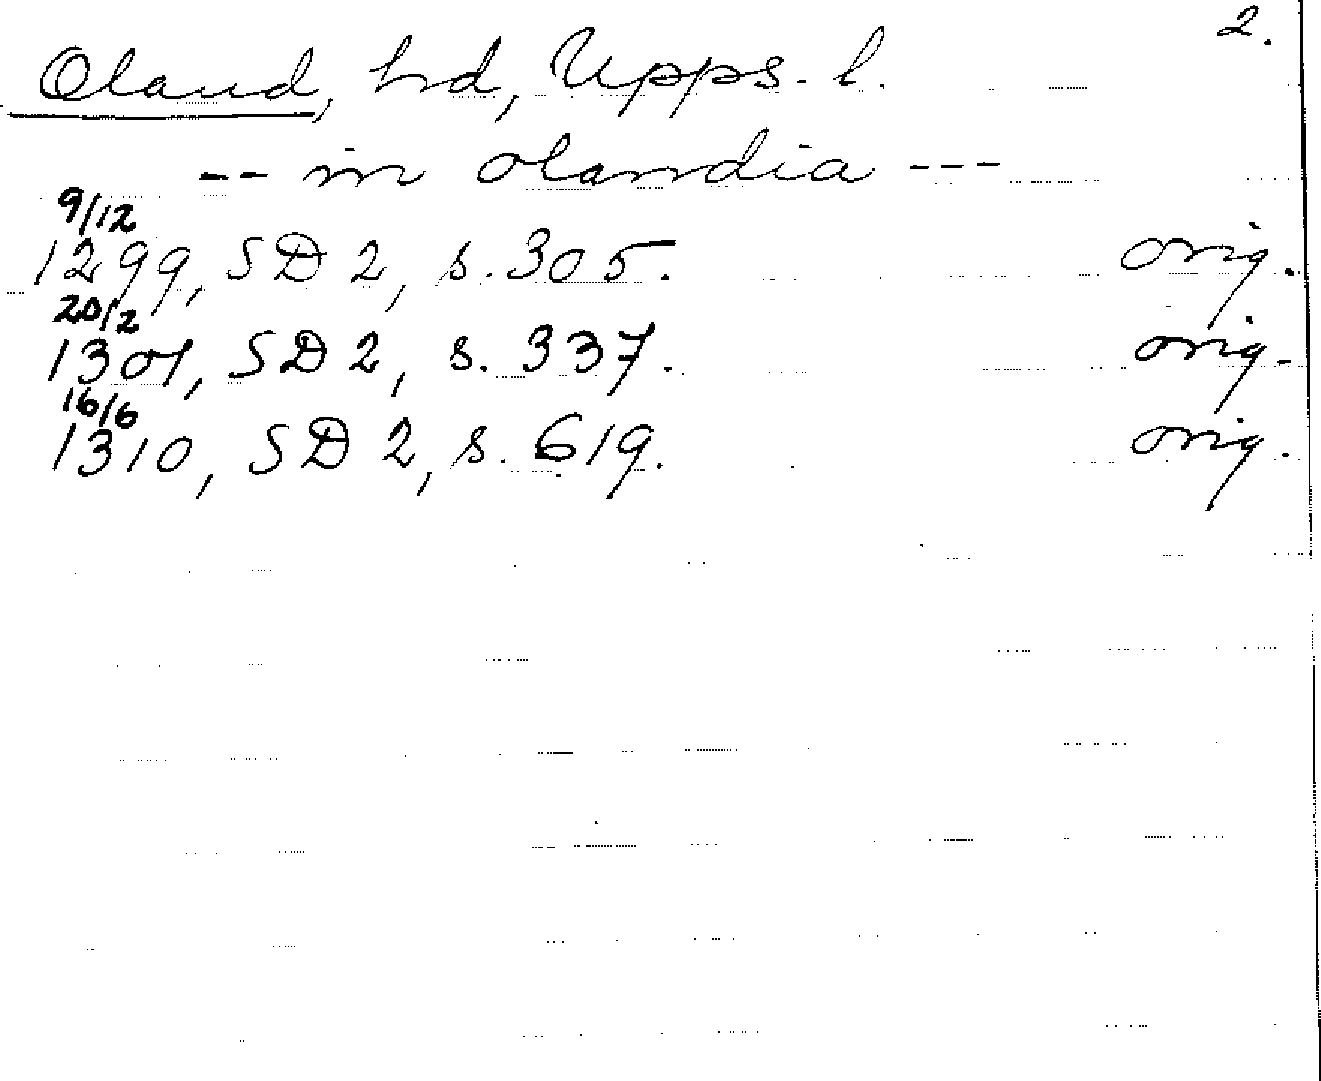 2.
Oland, hd, Upps. l.
-- in olandia ---
9/12
1299, SD 2, s. 305. orig.
20/2
1301, SD 2, s. 337. orig.
16/6
1310, SD 2, s. 619. orig.